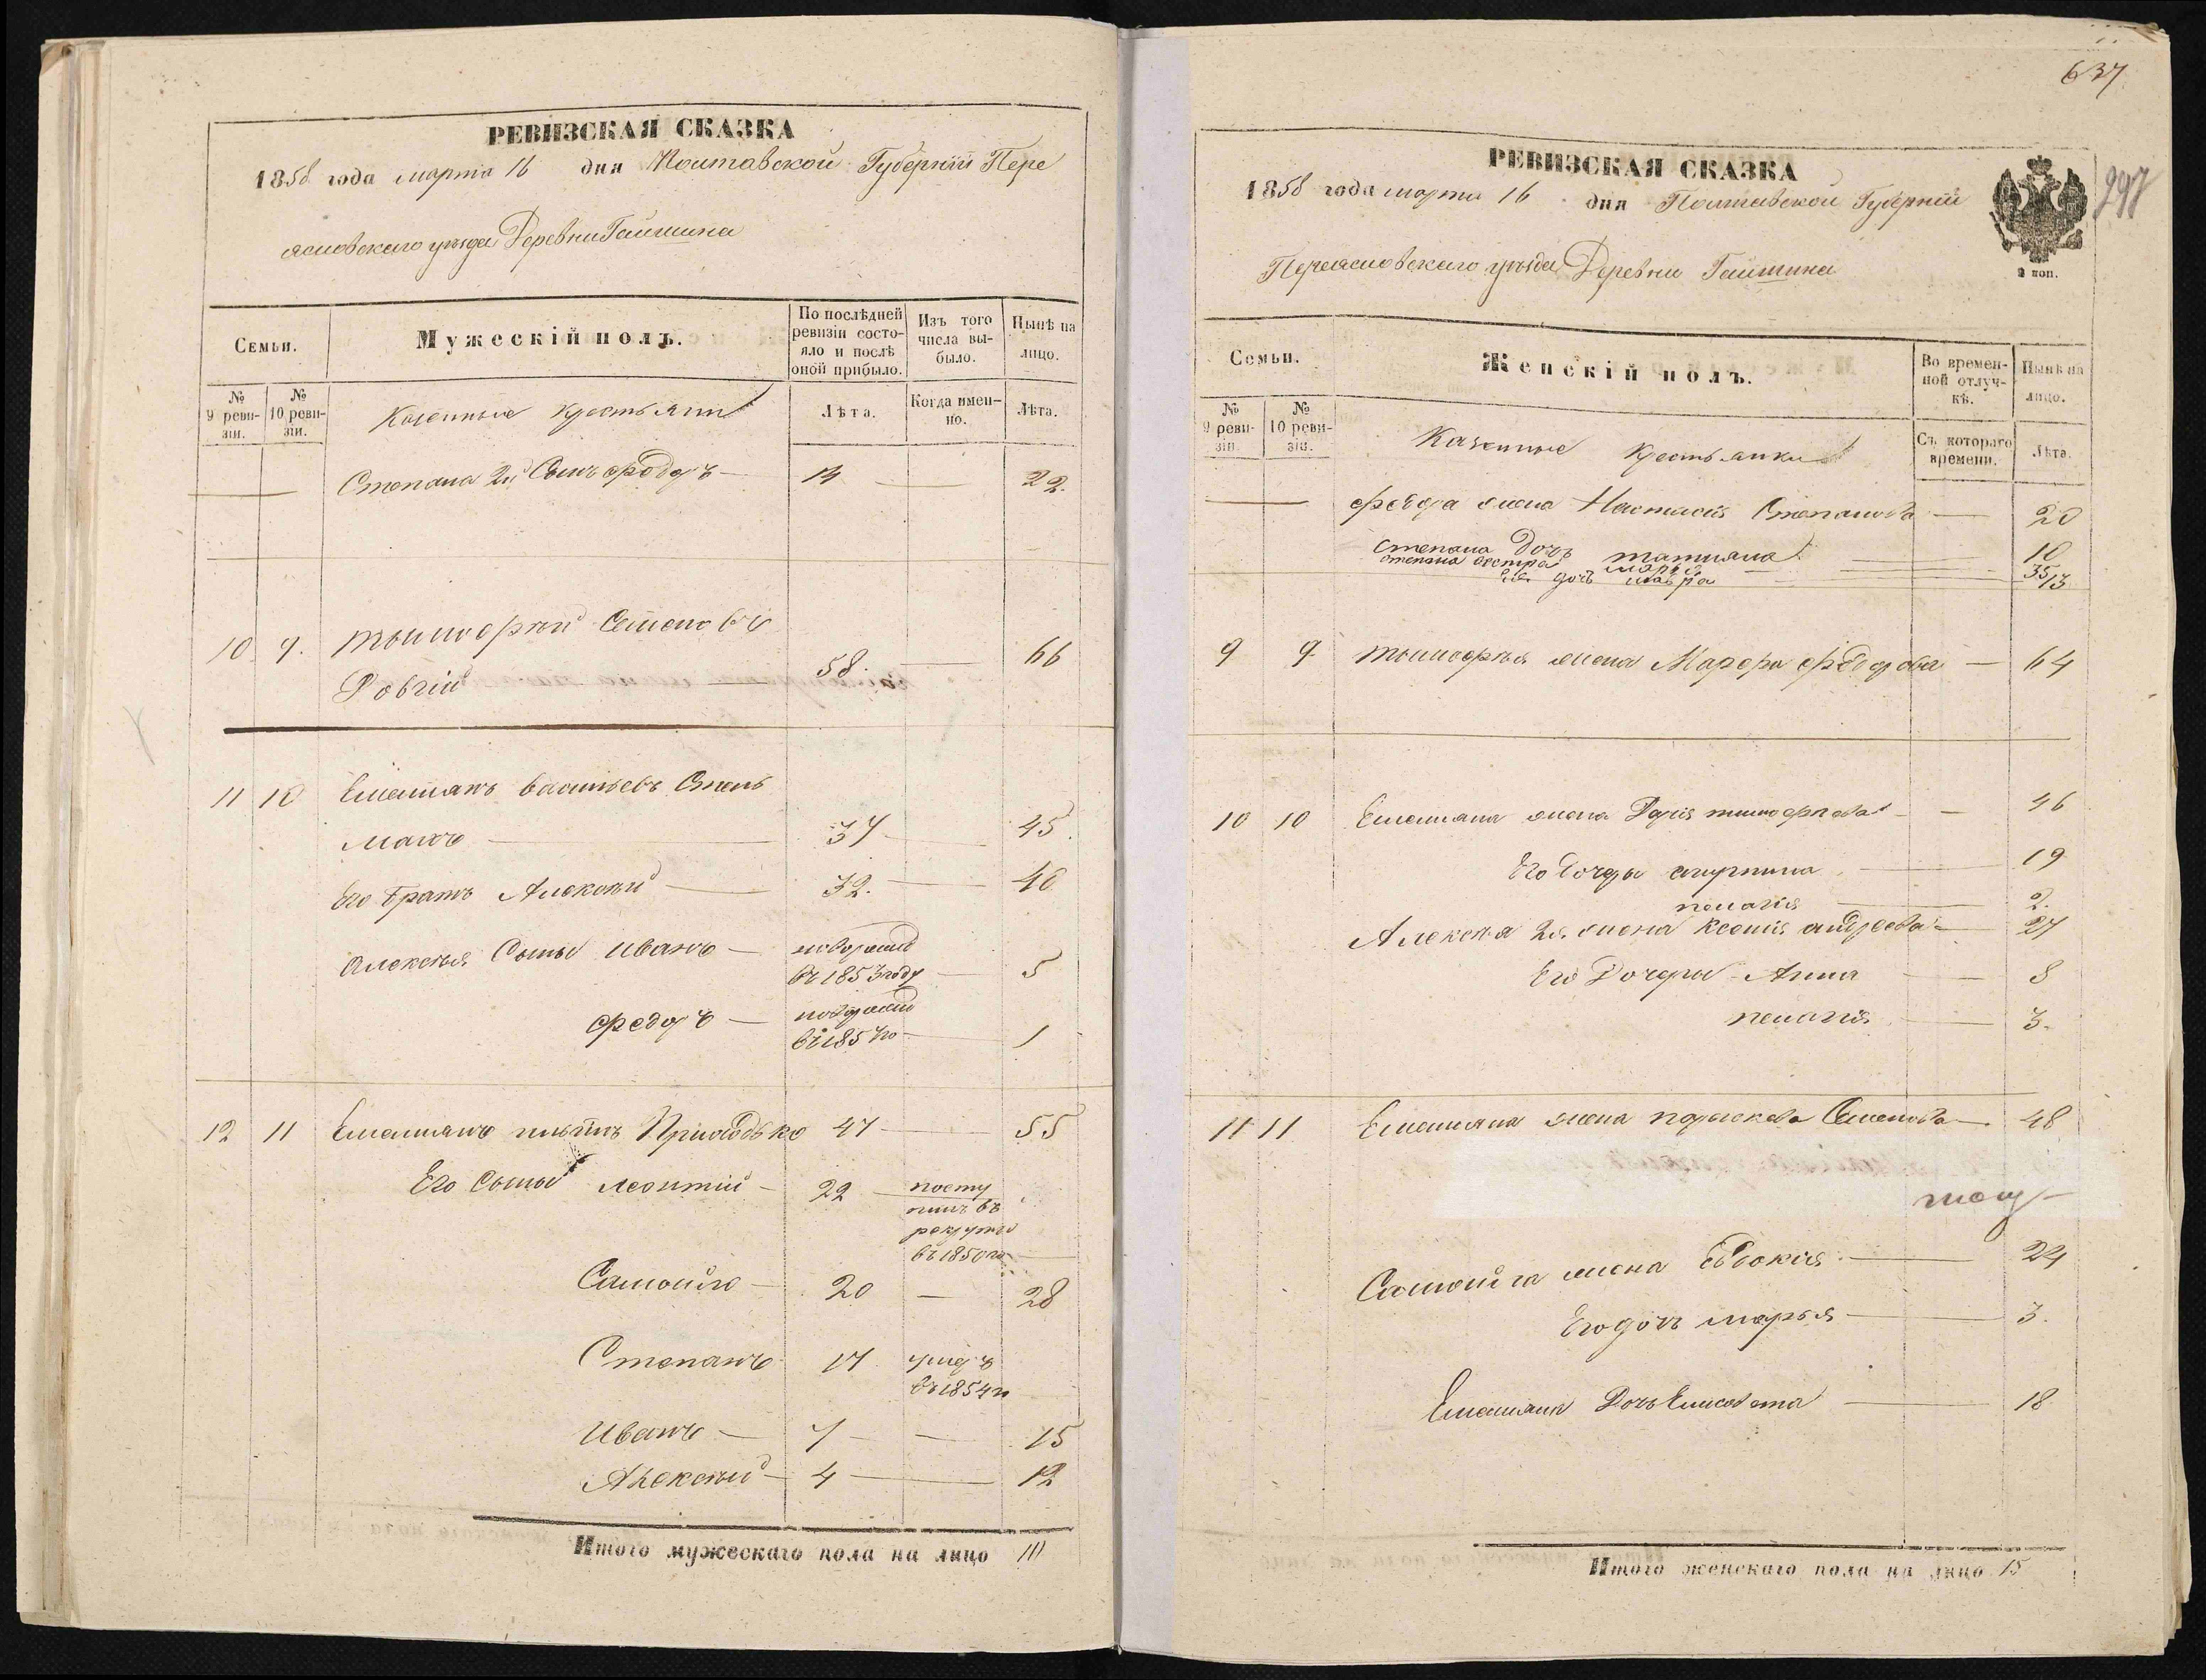 РЕВИЗСКАЯ СКАЗКА
1858 года марта 16 дня Полтавской Губерніи Пере
яславскаго уезда Деревни Гайшина
Семьи.
Мужескій полъ.
По послѣдней ревизіи состояло и послѣ оной прибыло.
Изъ того числа выбыло.
Нынѣ на лицо.
№ 9 ревизіи.
№ 10 ревизіи.
Казенные крестьяни
Лѣта.
Когда именно.
Лѣта.
Степана 2й Сынъ Федоръ — 14 — 22.
10. 9. Тымофей Семеновъ
Ровчій — 58. — 66
11 10 Емелианъ васильевъ Стель
махъ — 37 — 45.
Его братъ Алексѣй — 32. — 40
Алексѣя Сыны Иванъ — новорожд
въ 1853 году — 5
Федоръ — новорожд
въ 1857 го — 1
12 11 Емелианъ Приходько 47 — 55
Его Сыны Леонтій — 22 — посту
пилъ въ
рекруты
въ 1850 го —
Самойло — 20 — 28
Степанъ 17 умеръ
въ 1854 го
Иванъ — 7 — — 15
Алексѣй — 4 — 12
Итого мужескаго пола на лицо
637
297
РЕВИЗСКАЯ СКАЗКА
1858 года марта 16 дня Полтавской Губерніи
2 коп.
Переяславскаго уезда Деревни Гайшина
Семьи.
Женскій полъ.
Во временной отлучкѣ.
Нынѣ на лицо.
№ 9 ревизіи.
№ 10 ревизіи.
Казенные Крестьянки
Съ котораго времени.
Лѣта.
Федора жена Настасія Степанова — 20
Степана Дочь татияна — 10
степана сестра марья — 35
Ея дочь мавра — 13
9 9. тымофея жена Марфа Федорова — 64
10 10 Емелияна жена Дарія тимофеева — — 46
Его Дочери — 19
пелагія — 2.
Алексѣя 2я. жена Ксенія андреева — 27
Его Дочери Анна — 8
пелагія — 3.
11 11 Емелияна жена параскева Семенова — 48
Самойла жена Евдокія — 24
Его дочь марья — 3.
Емелияна Дочь Елисавета — 18
Итого женскаго пола на лицо 15